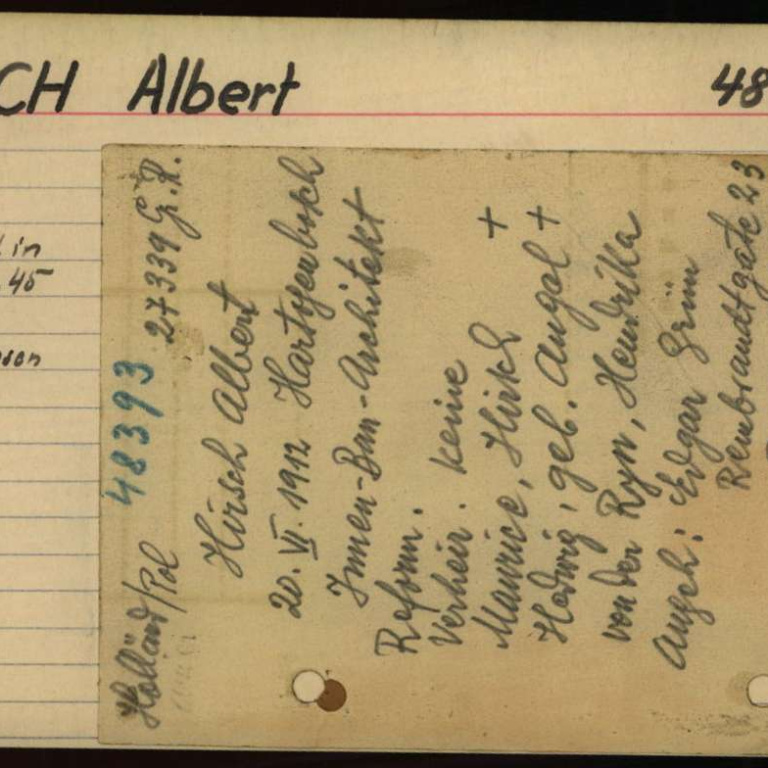 CH Albert 48
in
45
son
Holland/Pol 48393 27339 G.R.
Hirsch Albert
20. VI. 1912 Hartyenbosch
Innen-Bau-Architekt
Reform.
Verheir. Keine
Maurice, Hirsch +
Hedwig, geb. Angol +
von der Ryn, Hendrika
Angeh: Edgar Grün
Rembrandtgate 23